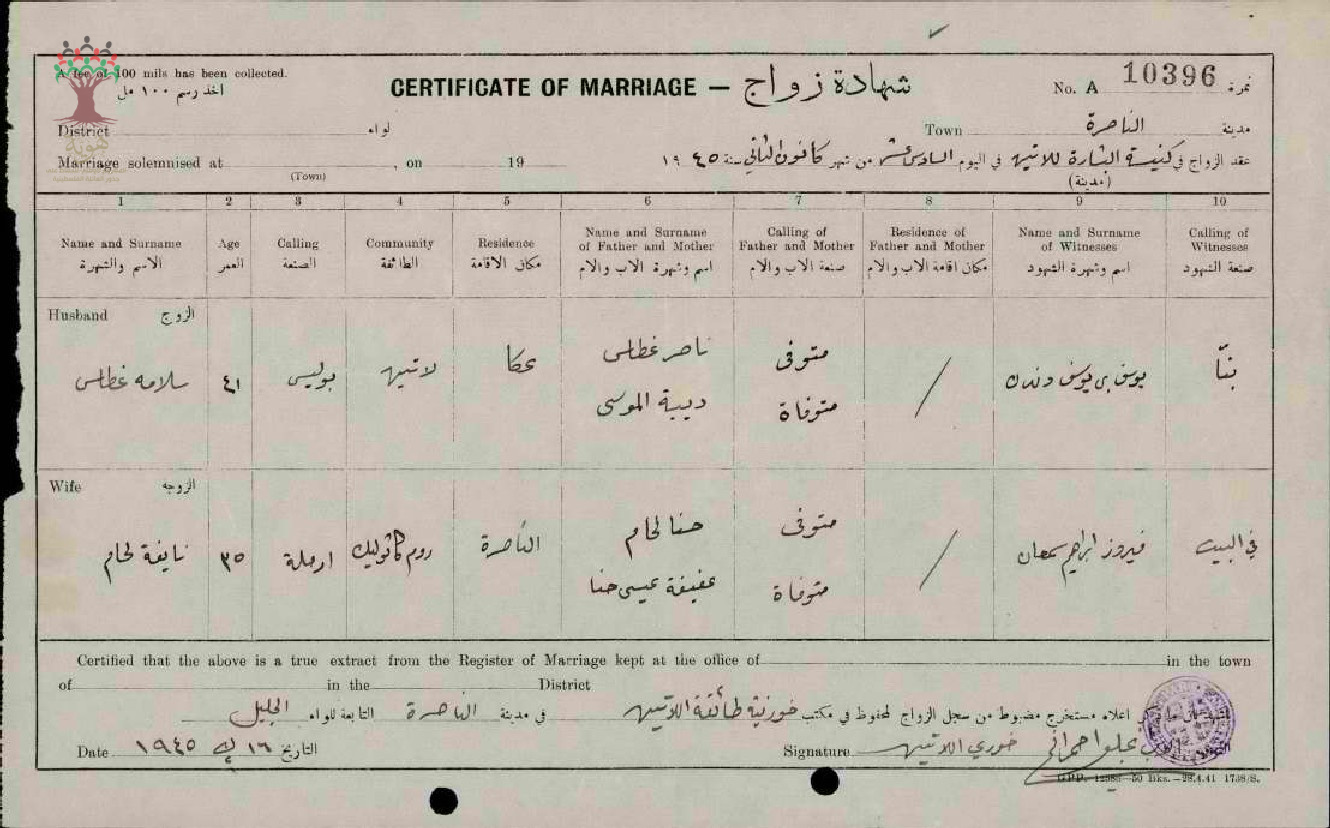 A fee of 100 mils has been collected.
اخذ رسم ١٠٠ مل
CERTIFICATE OF MARRIAGE — شهادة زواج
No. A 10396 نمرة
District لواء
Town الناصرة مدينة
Marriage solemnised at , on 19
(Town)
عقد الزواج في كنيسة البشارة للاتين في اليوم السادس عشر من شهر كانون الثاني سنة ١٩٤٥
(مدينة)
1 2 3 4 5 6 7 8 9 10
Name and Surname
الاسم والشهرة
Age
العمر
Calling
الصنعة
Community
الطائفة
Residence
مكان الاقامة
Name and Surname of Father and Mother
اسم وشهرة الاب والام
Calling of Father and Mother
صنعة الاب والام
Residence of Father and Mother
مكان اقامة الاب والام
Name and Surname of Witnesses
اسم وشهرة الشهود
Calling of Witnesses
صنعة الشهود
Husband الزوج
سلامه غطاس
٤١
بوليس
لاتين
عكا
ناصر غطاس
ديبة الموسى
متوفى
متوفاة
بنّا
Wife الزوجه
نايفة لحام
٣٥
ارملة
روم كاثوليك
الناصرة
حنا لحام
عفيفة عيسى حنا
متوفى
متوفاة
فيروز ابراهيم سمعان
في البيت
Certified that the above is a true extract from the Register of Marriage kept at the office of in the town
of in the District
اعلاه مستخرج مضبوط من سجل الزواج المحفوظ في مكتب خورنية طائفة اللاتين في مدينة الناصرة التابعة للواء الجليل
Date ١٦ ك٢ ١٩٤٥ التاريخ
Signature خوري اللاتين
G.P.P. 12083—50 Bks.—28.4.41 1738/S.
هوية